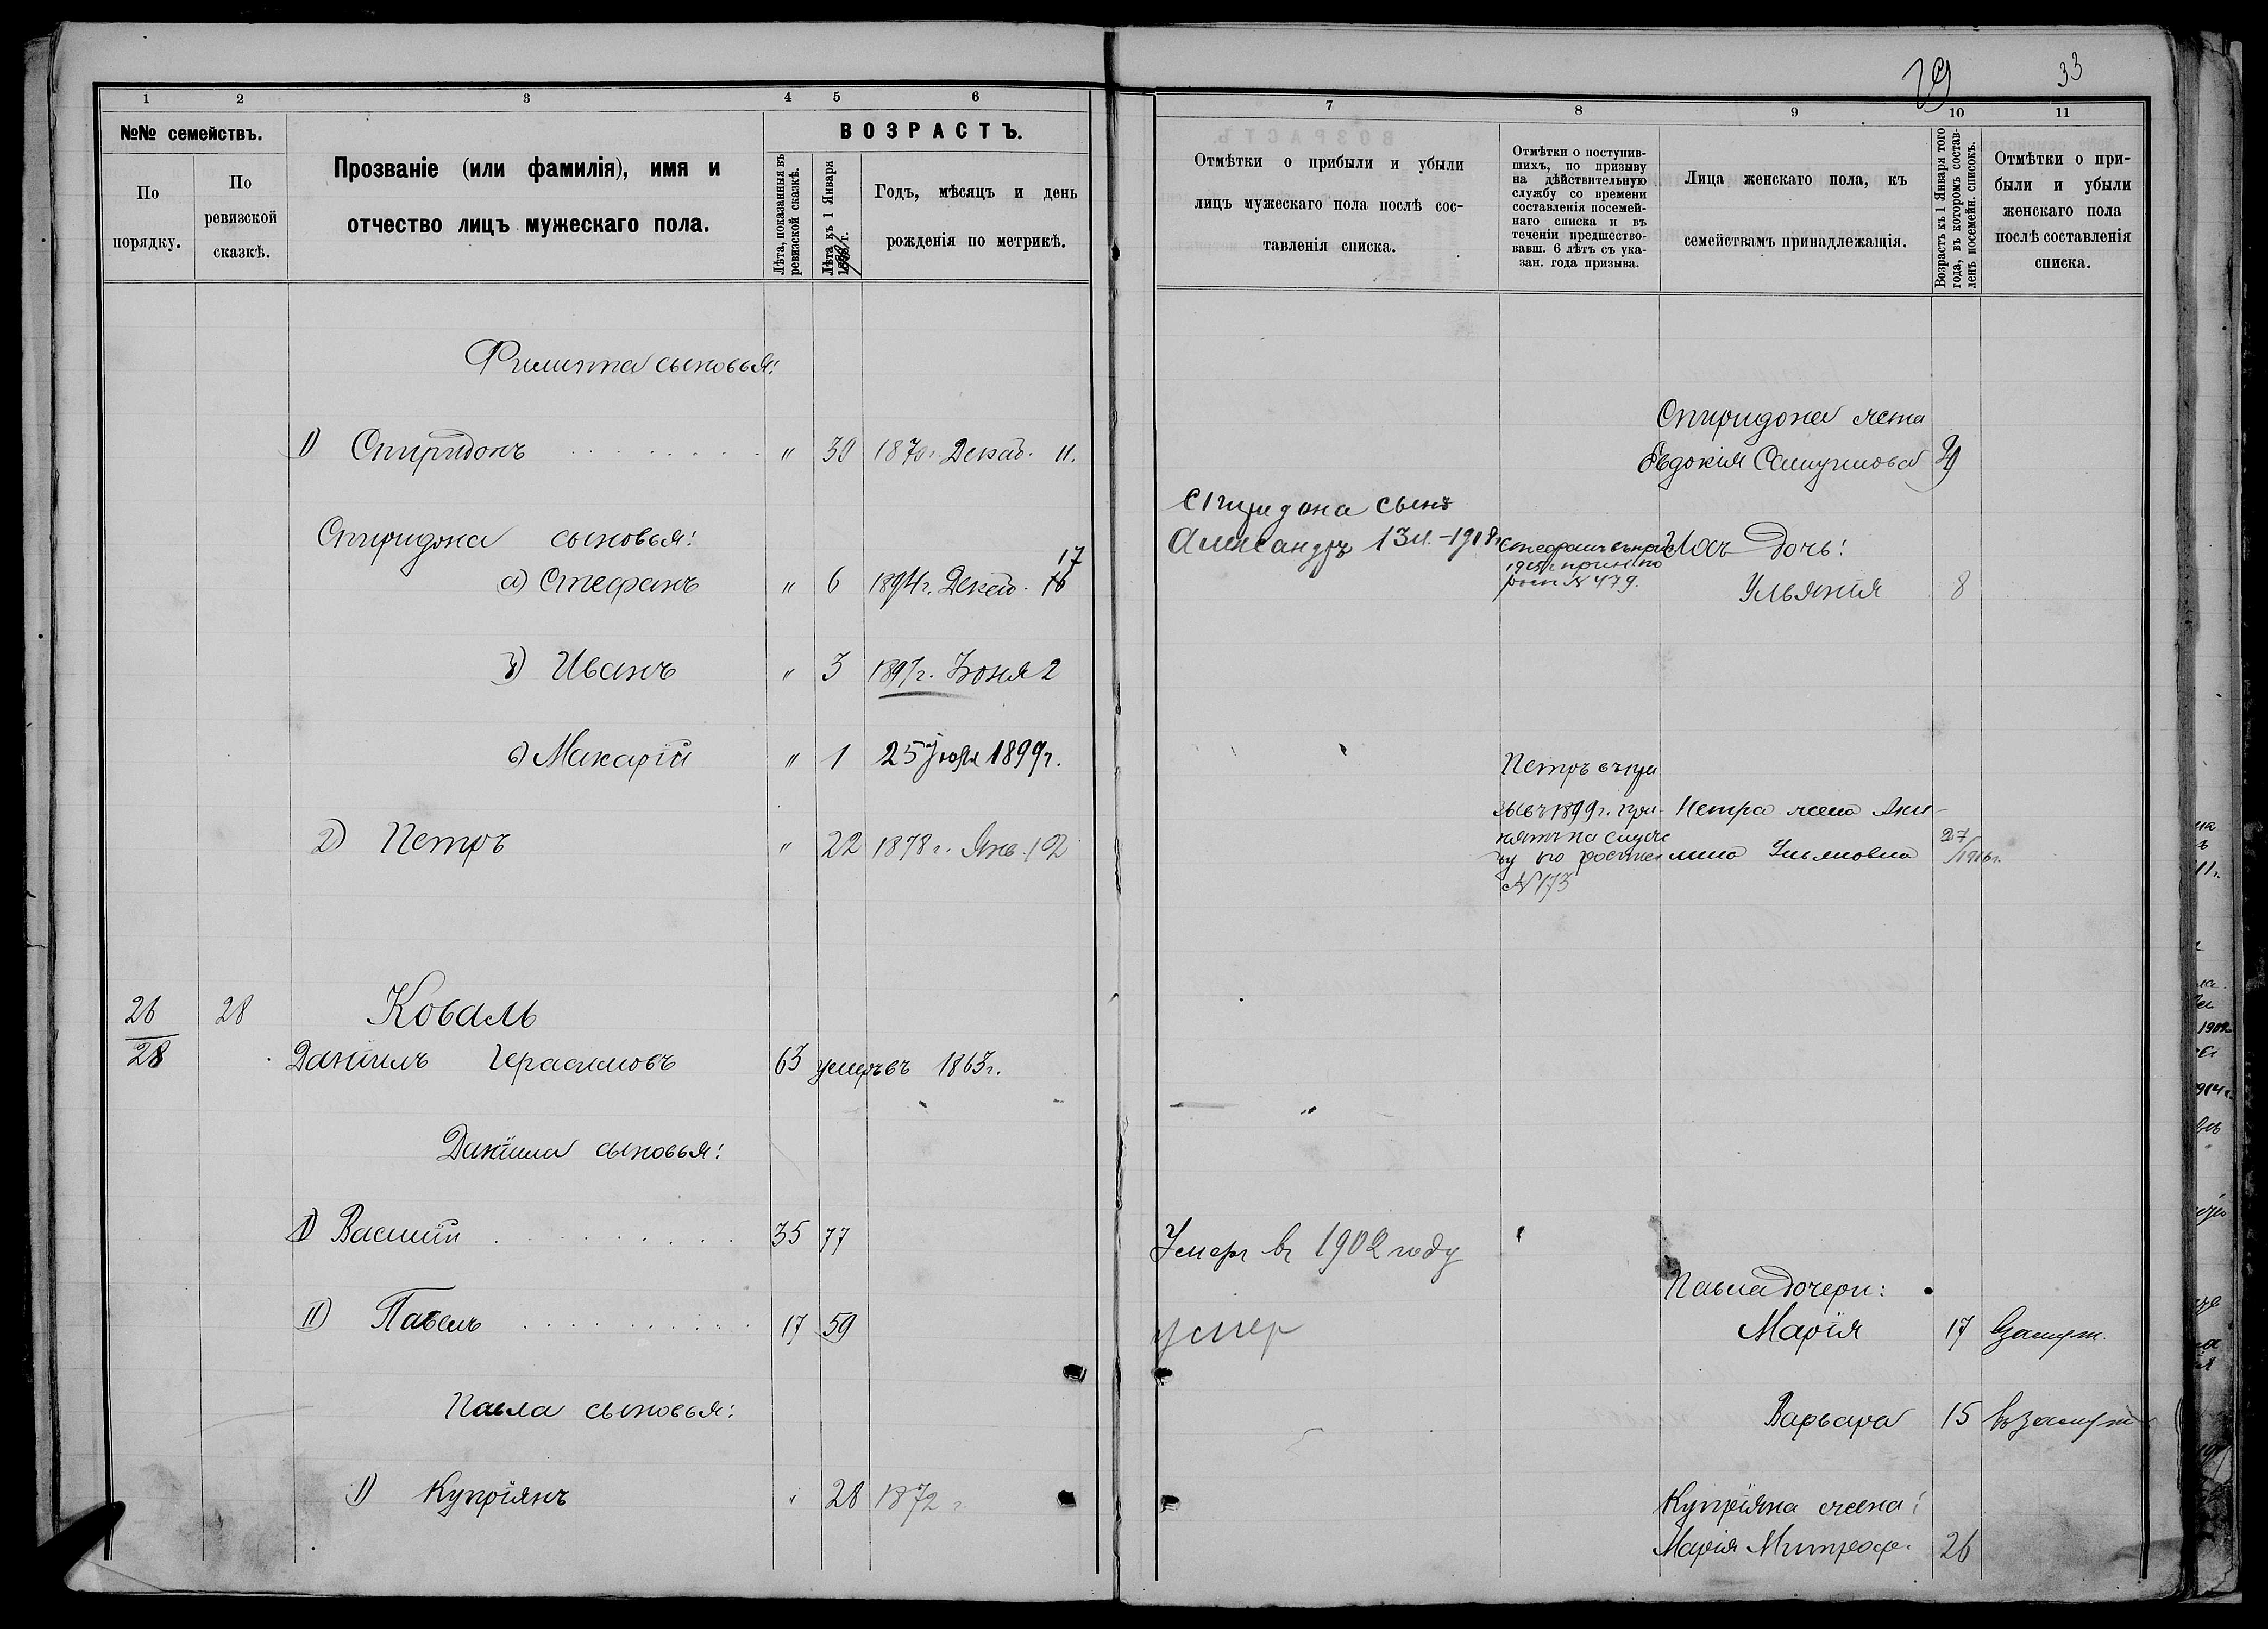 29 33
1 2 3 4 5 6
№№ семействъ.
По порядку.
По ревизской сказкѣ.
Прозваніе (или фамилія), имя и
отчество лицъ мужескаго пола.
ВОЗРАСТЪ.
Лѣта, показанныя въ
ревизской сказкѣ.
Лѣта къ 1 Января
Годъ, мѣсяцъ и день
рожденія по метрикѣ.
Филиппа сыновья:
1) Спиридонъ " 30 1870 г. Декаб. 11.
Спиридона сыновья:
17
а) Стефанъ " 6 1894 г. Декаб. 16
б) Иванъ " 3 1897 г. Іюня 2
в) Макарій " 1 25 1899 г.
2) Петръ " 22 1878 г. Янв. 12
26 28 Коваль
28 Даніилъ Герасимовъ 63 умеръ въ 1863 г.
Даніила сыновья:
I) Василій 35 77
II) Павелъ 17 59
Павла сыновья:
1) Купріянъ " 28 1872 г.
7 8 9 10 11
Отмѣтки о прибыли и убыли
лицъ мужескаго пола послѣ сос-
тавленія списка.
Отмѣтки о поступив-
шихъ, по призыву
на дѣйствительную
службу со времени
составленія посемей-
наго списка и въ
теченіи предшество-
вавш. 6 лѣтъ съ ука-
зан. года призыва.
Лица женскаго пола, къ
семействамъ принадлежащія.
Возрастъ къ 1 Января того
года, въ которомъ состав-
ленъ посемейн. списокъ.
Отмѣтки о при-
были и убыли
женскаго пола
послѣ составленія
списка.
Спиридона жена
Евдокія
Спиридона сынъ
Александръ 13 л. - 1918 г.
Стефанъ
1915 г. принятъ по
росп № 479.
Ихъ дочь:
Ульянія 8
Петръ въ при
зывъ 1899 г. при-
нятъ на служ
бу по роспис
№ 173
Петра жена Аки-
лина Ульяновна 27/1916 г.
Умеръ въ 1902 году
умер
Павла дочери:
Марія 17 Взамуж.
Варвара 15 въ замуж
Купріяна жена:
Марія Митроф. 26